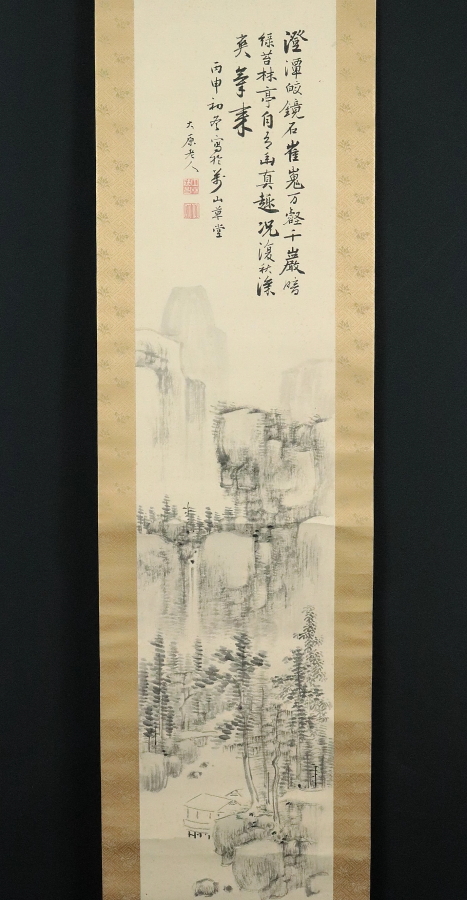 澄潭皎鏡石崔嵬万壑千巖暗
緑苔林亭自有幽真趣况復秋深
爽氣来
丙申初冬寫於萬山草堂
大原老人